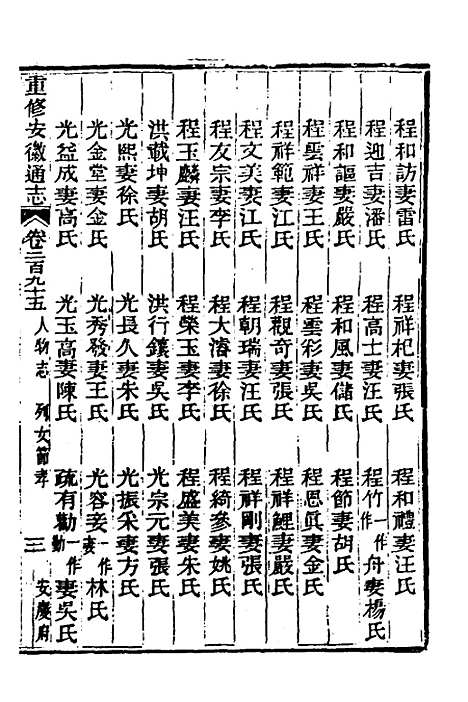 程和訪妻雷氏　程祥杞妻張氏　程和禮妻汪氏
程迎吉妻潘氏　程高士妻汪氏　程竹一作舟妻楊氏
程和謳妻嚴氏　程和風妻儲氏　程節妻胡氏
程雲祥妻王氏　程雲彩妻吳氏　程恩眞妻金氏
程祥範妻江氏　程觀奇妻張氏　程祥鯉妻嚴氏
程文美妻江氏　程朝瑞妻汪氏　程祥剛妻張氏
程友宗妻李氏　程大濬妻徐氏　程綺參妻姚氏
程玉麟妻汪氏　程榮玉妻李氏　程盛美妻朱氏
洪載坤妻胡氏　洪行鑲妻吳氏　光宗元妻張氏
光熙妻徐氏　光長久妻朱氏　光振采妻方氏
光金堂妻金氏　光秀發妻王氏　光容妾一作妻林氏
光益成妻高氏　光玉高妻陳氏　疏有勸一作勤妻吳氏
重修安徽通志　卷二百九十五　人物志　列女節孝　三　安慶府